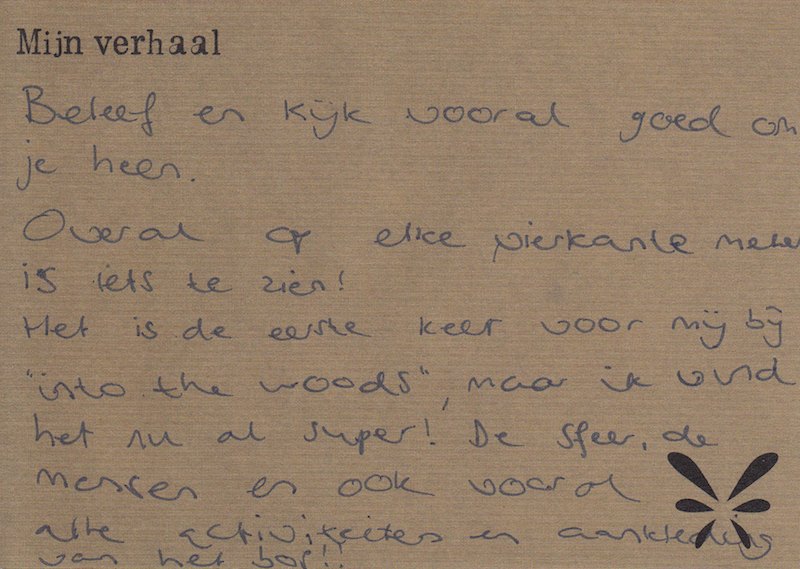 Mijn verhaal
Beleef en kijk vooral goed om
je heen.
Overal op elke vierkante meter
is iets te zien!
Het is de eerste keer voor mij bij
"into the woods", maar ik vind
het nu al super! De sfeer, de
mensen en ook vooral
alle activiteiten en aankleding
van het bos!!